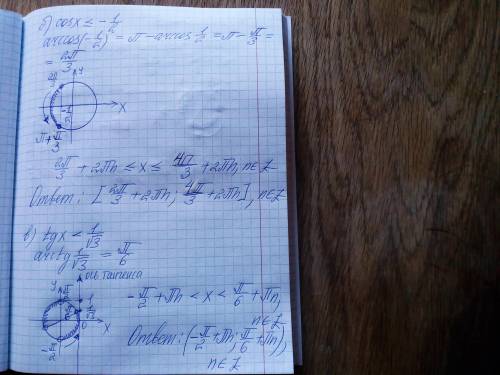 б) cosx ≤ -1/2
arccos(-1/2) = π - arccos 1/2 = π - π/3 =
= 2π/3
y
-1/2
x
π+π/3
2π/3 + 2πn ≤ x ≤ 4π/3 + 2πn, n∈Z
Ответ: [2π/3 + 2πn; 4π/3 + 2πn], n∈Z
в) tgx < 1/√3
arctg 1/√3 = π/6
ось тангенса
y
1
1/√3
0
x
-π/2 + πn < x < π/6 + πn,
n∈Z
Ответ: (-π/2 + πn; π/6 + πn),
n∈Z